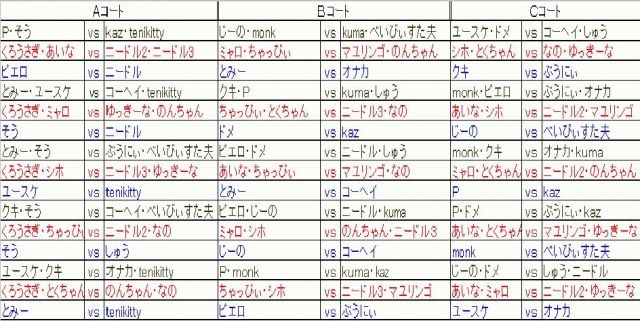 Aコート Bコート Cコート
P・そう vs kaz・tenikitty じーの・monk vs kuma・べいびぃすた夫 ユースケ・ドメ vs コーヘイ・しゅう
くろうさぎ・あいな vs ニードル2・ニードル3 ミャロ・ちゃっぴぃ vs マユリンゴ・のんちゃん シホ・とくちゃん vs なの・ゆっきーな
ピエロ vs ニードル とみー vs オナカ クキ vs ぶうにぃ
とみー・ユースケ vs コーヘイ・tenikitty クキ・P vs kuma・しゅう monk・ピエロ vs ぶうにぃ・オナカ
くろうさぎ・ミャロ vs ゆっきーな・のんちゃん ちゃっぴぃ・とくちゃん vs ニードル3・なの あいな・シホ vs ニードル2・マユリンゴ
そう vs ニードル ドメ vs kaz じーの vs べいびぃすた夫
とみー・そう vs ぶうにぃ・べいびぃすた夫 ピエロ・ドメ vs ニードル・しゅう monk・クキ vs オナカ・kuma
くろうさぎ・シホ vs ニードル3・ゆっきーな あいな・ちゃっぴぃ vs マユリンゴ・なの ミャロ・とくちゃん vs ニードル2・のんちゃん
ユースケ vs tenikitty とみー vs コーヘイ P vs kaz
クキ・そう vs コーヘイ・べいびぃすた夫 ピエロ・じーの vs ニードル・kuma P・ドメ vs ぶうにぃ・kaz
くろうさぎ・ちゃっぴぃ vs ニードル2・なの ミャロ・シホ vs のんちゃん・ニードル3 あいな・とくちゃん vs マユリンゴ・ゆっきーな
そう vs しゅう じーの vs コーヘイ monk vs べいびぃすた夫
ユースケ・クキ vs オナカ・tenikitty P・monk vs kuma・kaz じーの・ドメ vs しゅう・ニードル
くろうさぎ・とくちゃん vs のんちゃん・なの ちゃっぴぃ・シホ vs ニードル3・マユリンゴ あいな・ミャロ vs ニードル2・ゆっきーな
とみー vs tenikitty ピエロ vs ぶうにぃ ユースケ vs オナカ